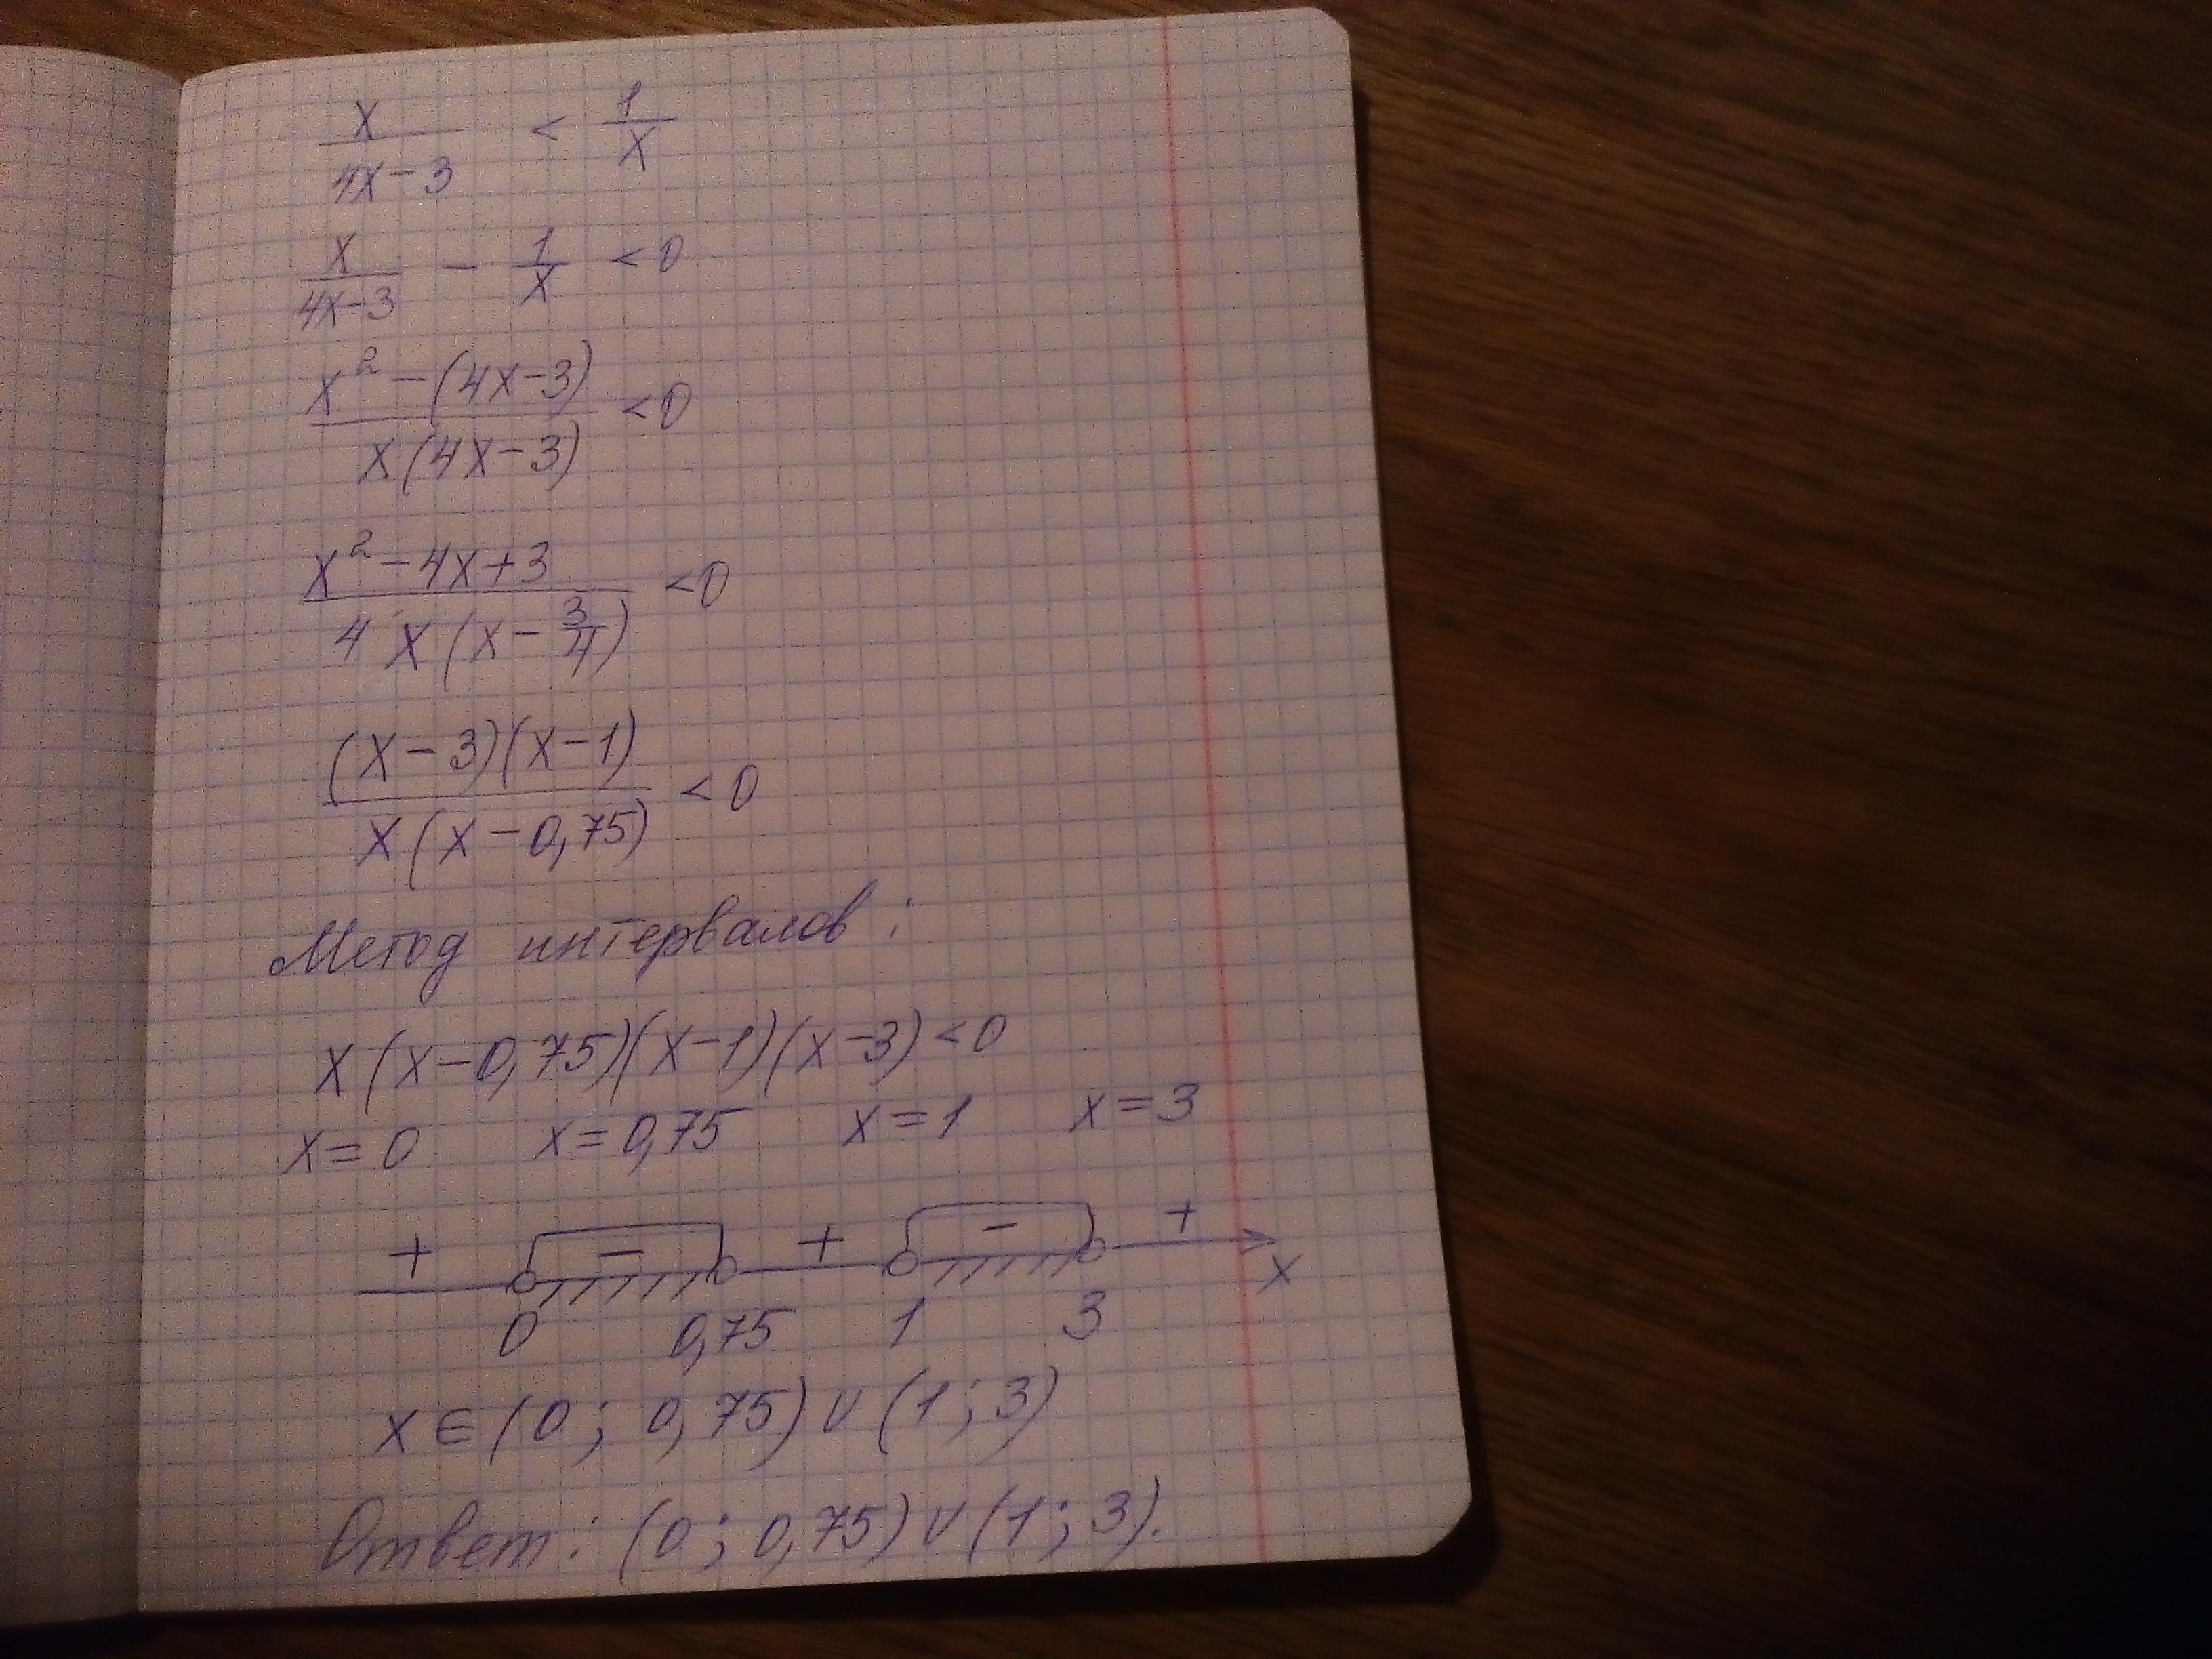 x/(4x-3) < 1/x
x/(4x-3) - 1/x < 0
(x² - (4x-3))/(x(4x-3)) < 0
(x² - 4x + 3)/(4x(x - 3/4)) < 0
((x-3)(x-1))/(x(x-0,75)) < 0
Метод интервалов:
x(x-0,75)(x-1)(x-3) < 0
x=0 x=0,75 x=1 x=3
+ - + - +
0 0,75 1 3 x
x ∈ (0; 0,75) ∪ (1; 3)
Ответ: (0; 0,75) ∪ (1; 3).